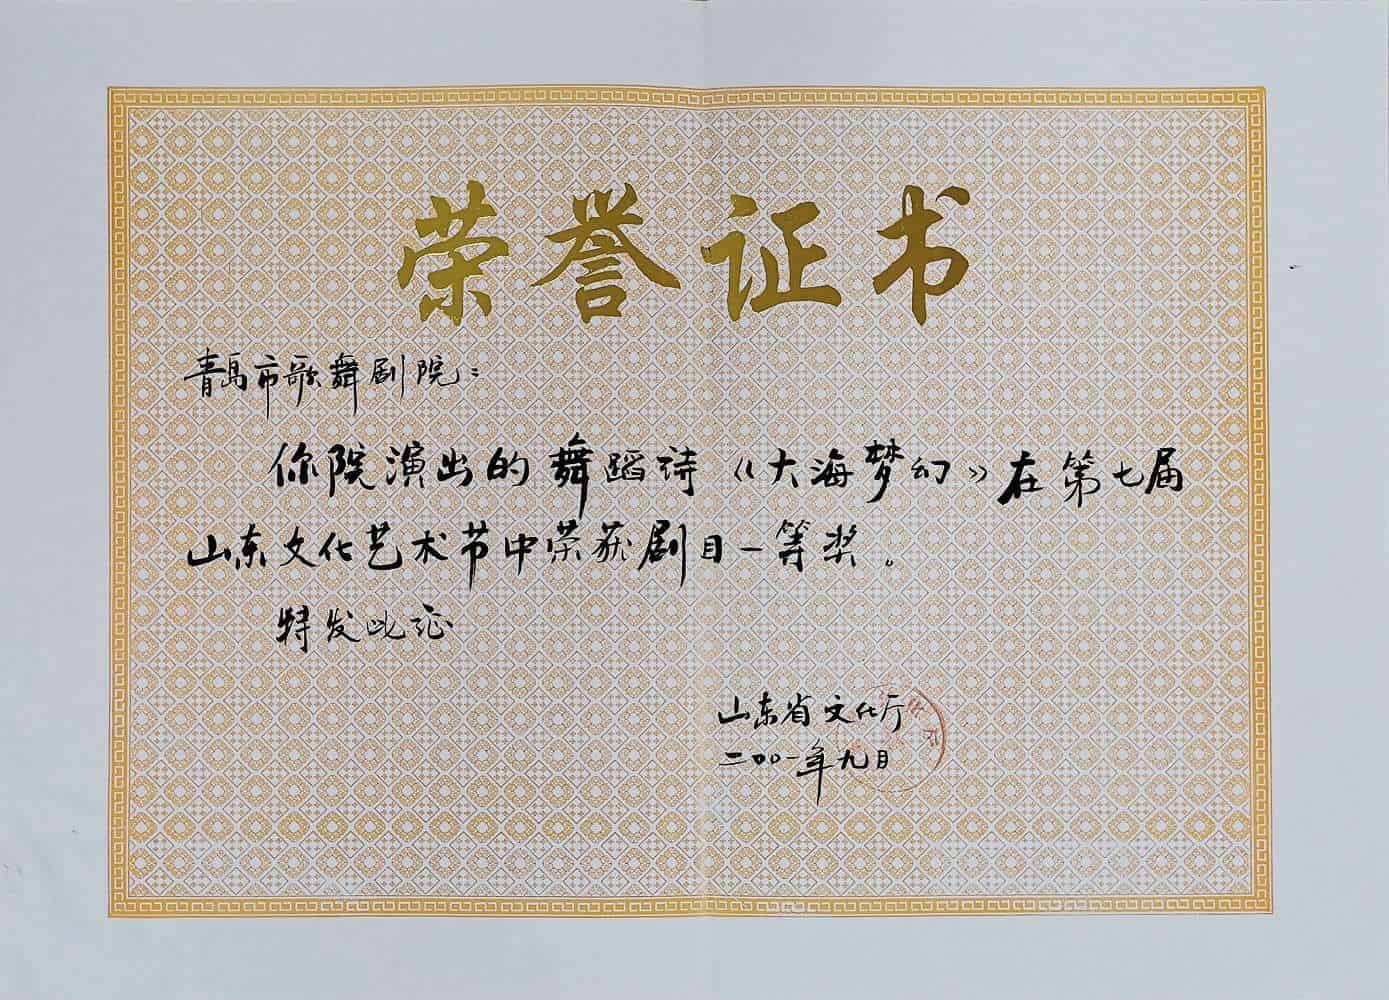 荣誉证书
青岛市歌舞剧院：
你院演出的舞蹈诗《大海梦幻》在第七届
山东文化艺术节中荣获剧目一等奖。
特发此证
山东省文化厅
二〇〇一年九月